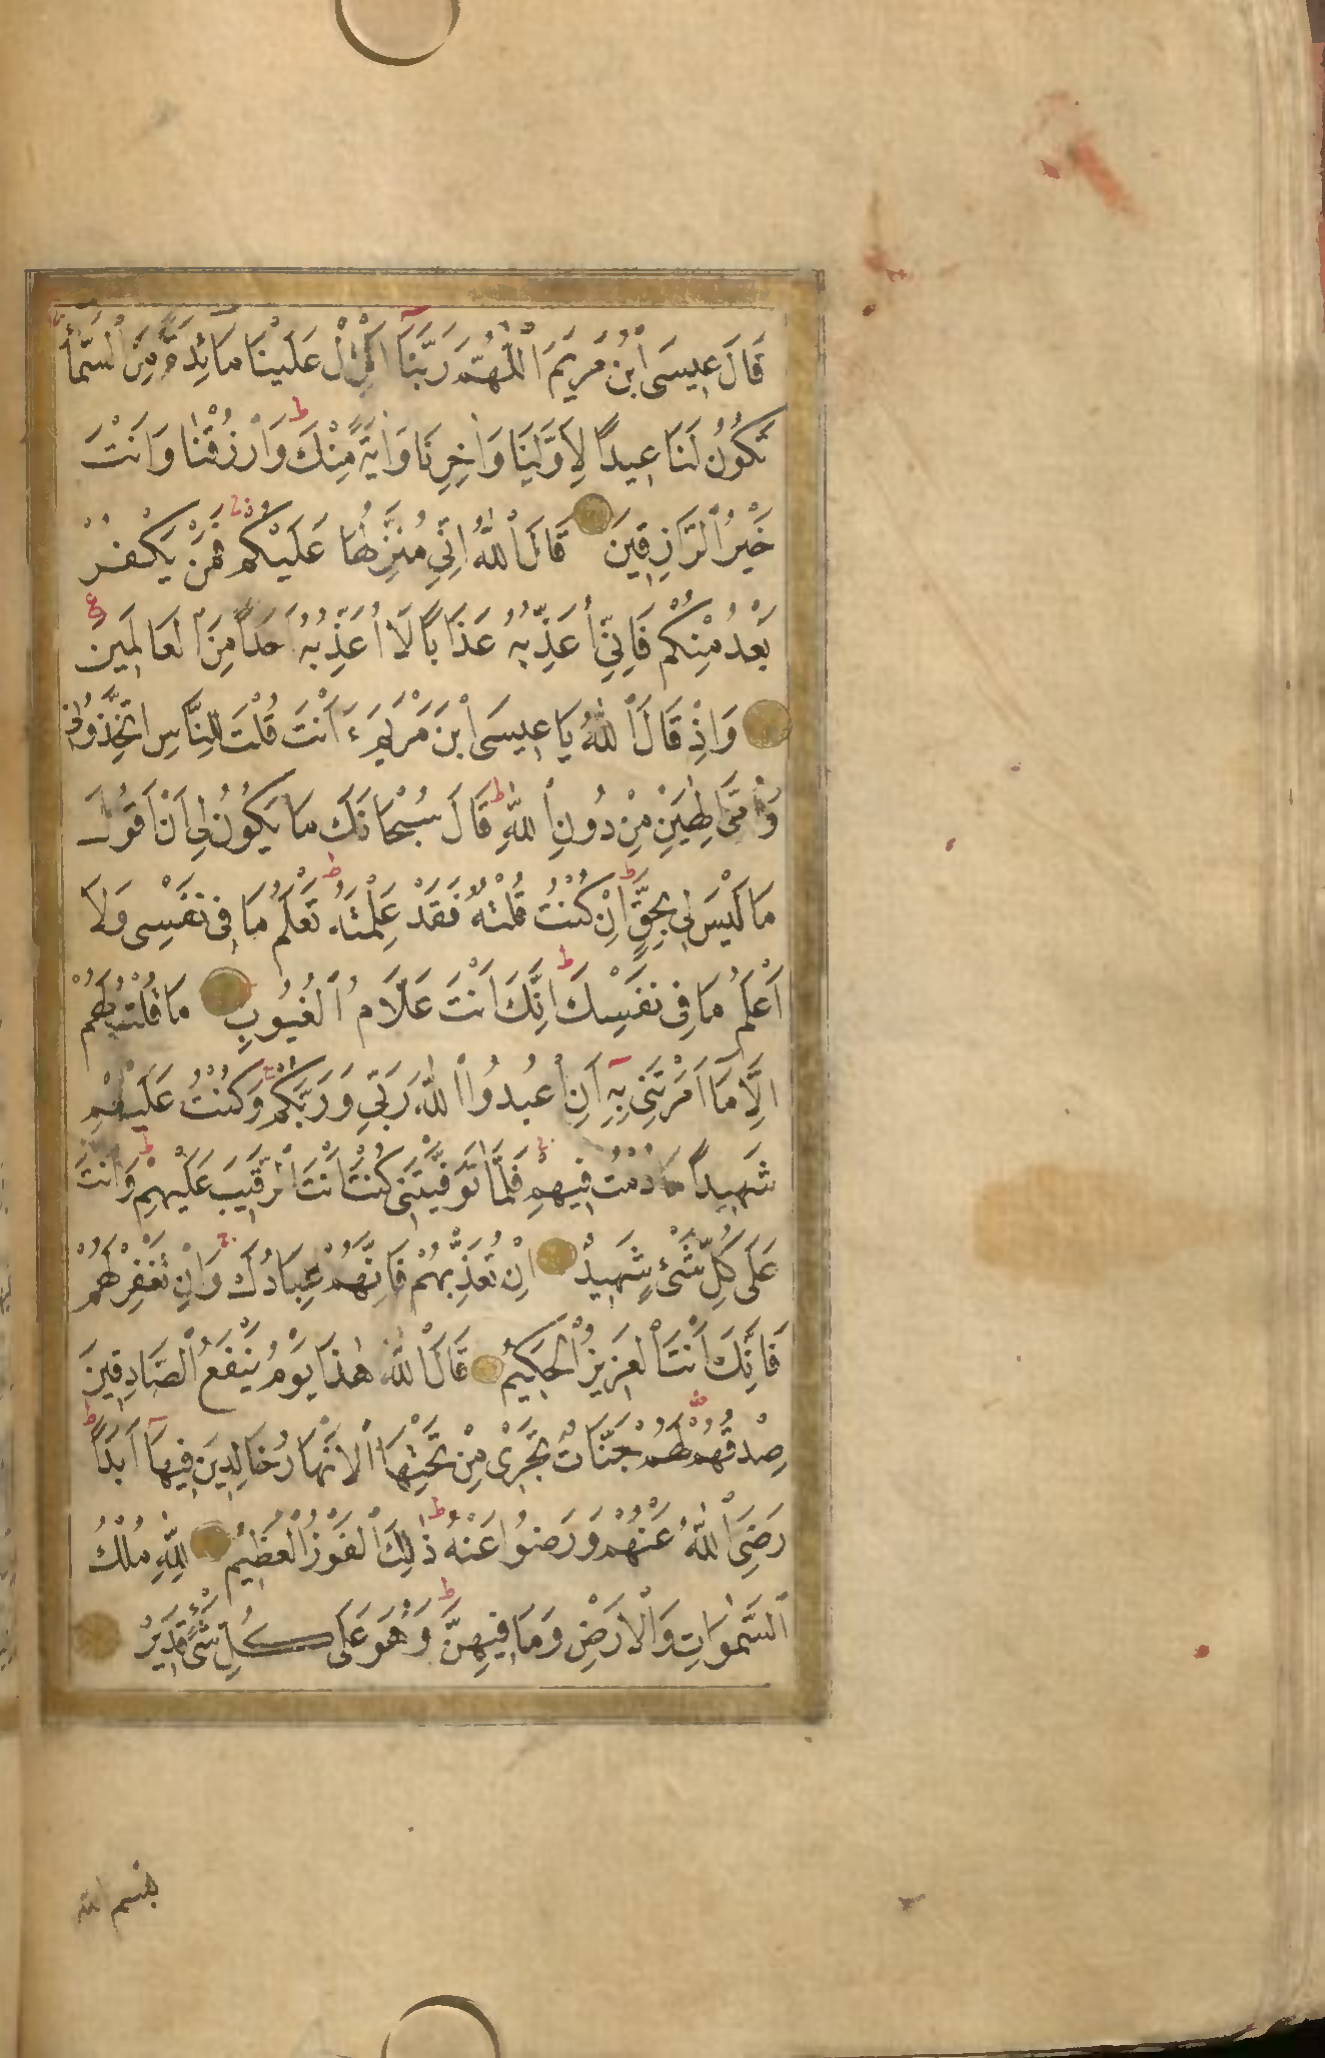 قَالَ عِيسَى ابْنُ مَرْيَمَ اللّٰهُمَّ رَبَّنَا اَنْزِلْ عَلَيْنَا مَائِدَةً مِنَ السَّمَاءِ
تَكُونُ لَنَا عِيدًا لِاَوَّلِنَا وَاٰخِرِنَا وَاٰيَةً مِنْكَ ط وَارْزُقْنَا وَاَنْتَ
خَيْرُ الرَّازِقِينَ قَالَ اللّٰهُ اِنِّي مُنَزِّلُهَا عَلَيْكُمْ فَمَنْ يَكْفُرْ
بَعْدُ مِنْكُمْ فَاِنِّي اُعَذِّبُهُ عَذَابًا لَا اُعَذِّبُهُ اَحَدًا مِنَ الْعَالَمِينَ ع
وَاِذْ قَالَ اللّٰهُ يَا عِيسَى ابْنَ مَرْيَمَ ءَاَنْتَ قُلْتَ لِلنَّاسِ اتَّخِذُونِي
وَاُمِّيَ اِلٰهَيْنِ مِنْ دُونِ اللّٰهِ ط قَالَ سُبْحَانَكَ مَا يَكُونُ لِي اَنْ اَقُولَ
مَا لَيْسَ لِي بِحَقٍّ ط اِنْ كُنْتُ قُلْتُهُ فَقَدْ عَلِمْتَهُ ط تَعْلَمُ مَا فِي نَفْسِي وَلَا
اَعْلَمُ مَا فِي نَفْسِكَ ط اِنَّكَ اَنْتَ عَلَّامُ الْغُيُوبِ مَا قُلْتُ لَهُمْ
اِلَّا مَا اَمَرْتَنِي بِهِ اَنِ اعْبُدُوا اللّٰهَ رَبِّي وَرَبَّكُمْ وَكُنْتُ عَلَيْهِمْ
شَهِيدًا مَا دُمْتُ فِيهِمْ ج فَلَمَّا تَوَفَّيْتَنِي كُنْتَ اَنْتَ الرَّقِيبَ عَلَيْهِمْ ط وَاَنْتَ
عَلَى كُلِّ شَيْءٍ شَهِيدٌ اِنْ تُعَذِّبْهُمْ فَاِنَّهُمْ عِبَادُكَ ج وَاِنْ تَغْفِرْ لَهُمْ
فَاِنَّكَ اَنْتَ الْعَزِيزُ الْحَكِيمُ قَالَ اللّٰهُ هٰذَا يَوْمُ يَنْفَعُ الصَّادِقِينَ
صِدْقُهُمْ لَهُمْ جَنَّاتٌ تَجْرِي مِنْ تَحْتِهَا الْاَنْهَارُ خَالِدِينَ فِيهَا اَبَدًا ط
رَضِيَ اللّٰهُ عَنْهُمْ وَرَضُوا عَنْهُ ط ذٰلِكَ الْفَوْزُ الْعَظِيمُ لِلّٰهِ مُلْكُ
السَّمٰوَاتِ وَالْاَرْضِ وَمَا فِيهِنَّ ط وَهُوَ عَلَى كُلِّ شَيْءٍ قَدِيرٌ
بسم الله